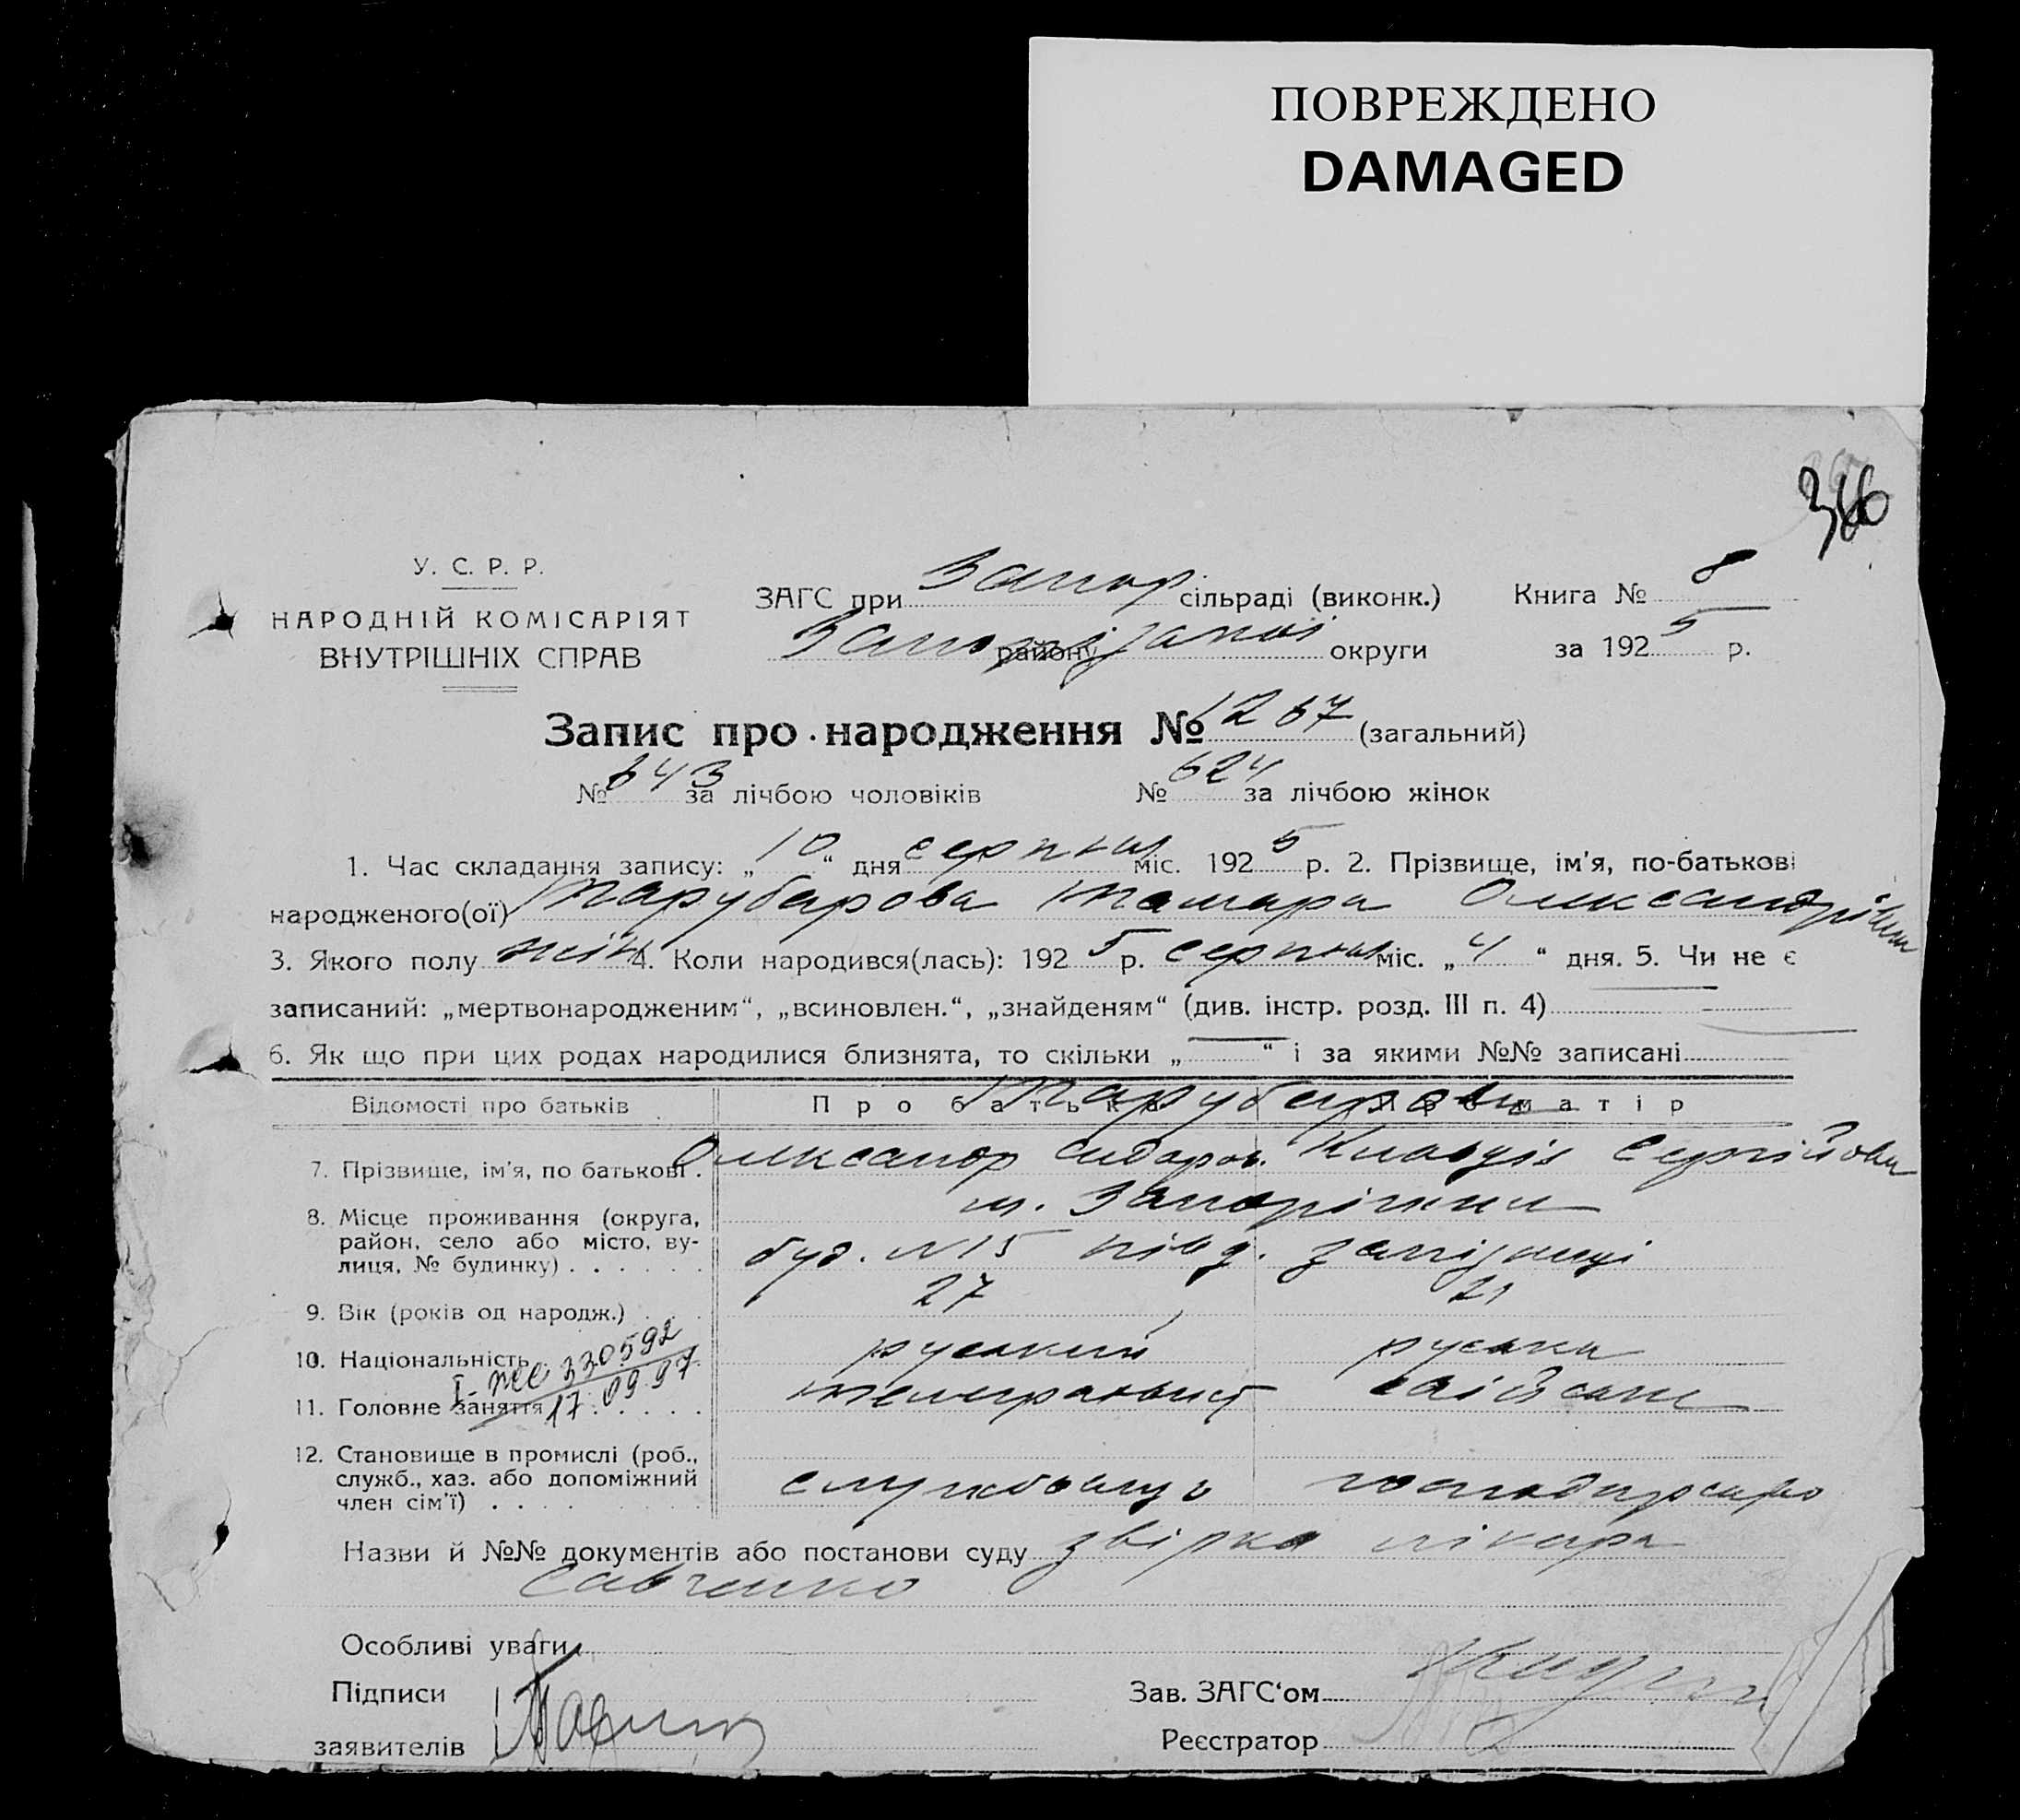 ПОВРЕЖДЕНО
DAMAGED
366
У. С. Р. Р.
НАРОДНІЙ КОМІСАРІЯТ
ВНУТРІШНІХ СПРАВ
ЗАГС при Запор сільраді (виконк.)
району Запорізької округи
Книга № 8
за 1925 р.
Запис про народження № 1267 (загальний)
№ 643 за лічбою чоловіків № 624 за лічбою жінок
1. Час складання запису: „10“ дня серпня міс. 1925 р. 2. Прізвище, ім'я, по-батькові
народженого(ої) Тарубарова Тамара Олександрівна
3. Якого полу жін 4. Коли народився(лась): 1925 р. серпня міс. „4“ дня. 5. Чи не є
записаний: „мертвонародженим“, „всиновлен.“, „знайденям“ (див. інстр. розд. III п. 4)
6. Як що при цих родах народилися близнята, то скільки „—“ і за якими №№ записані
Відомості про батьків Про батька Про матір
Тарубарови
7. Прізвище, ім'я, по батькові . Олександр Сидоров. Клавдія Сергійовн
8. Місце проживання (округа, район, село або місто, вулиця, № будинку) . . . . . . м. Запоріжжя
буд. №15 півд. залізниці
9. Вік (років од народж.) . . . 27 21
10. Національність руський руська
І-ЖС 330592
17.09.97
11. Головне заняття . . . . . телеграфист хазійка
12. Становище в промислі (роб., служб., хаз. або допоміжний член сім'ї) . . . . службовець господарство
Назви й №№ документів або постанови суду звірка лікаря
Савченко
Особливі уваги
Підписи
заявителів
Зав. ЗАГС'ом
Реєстратор